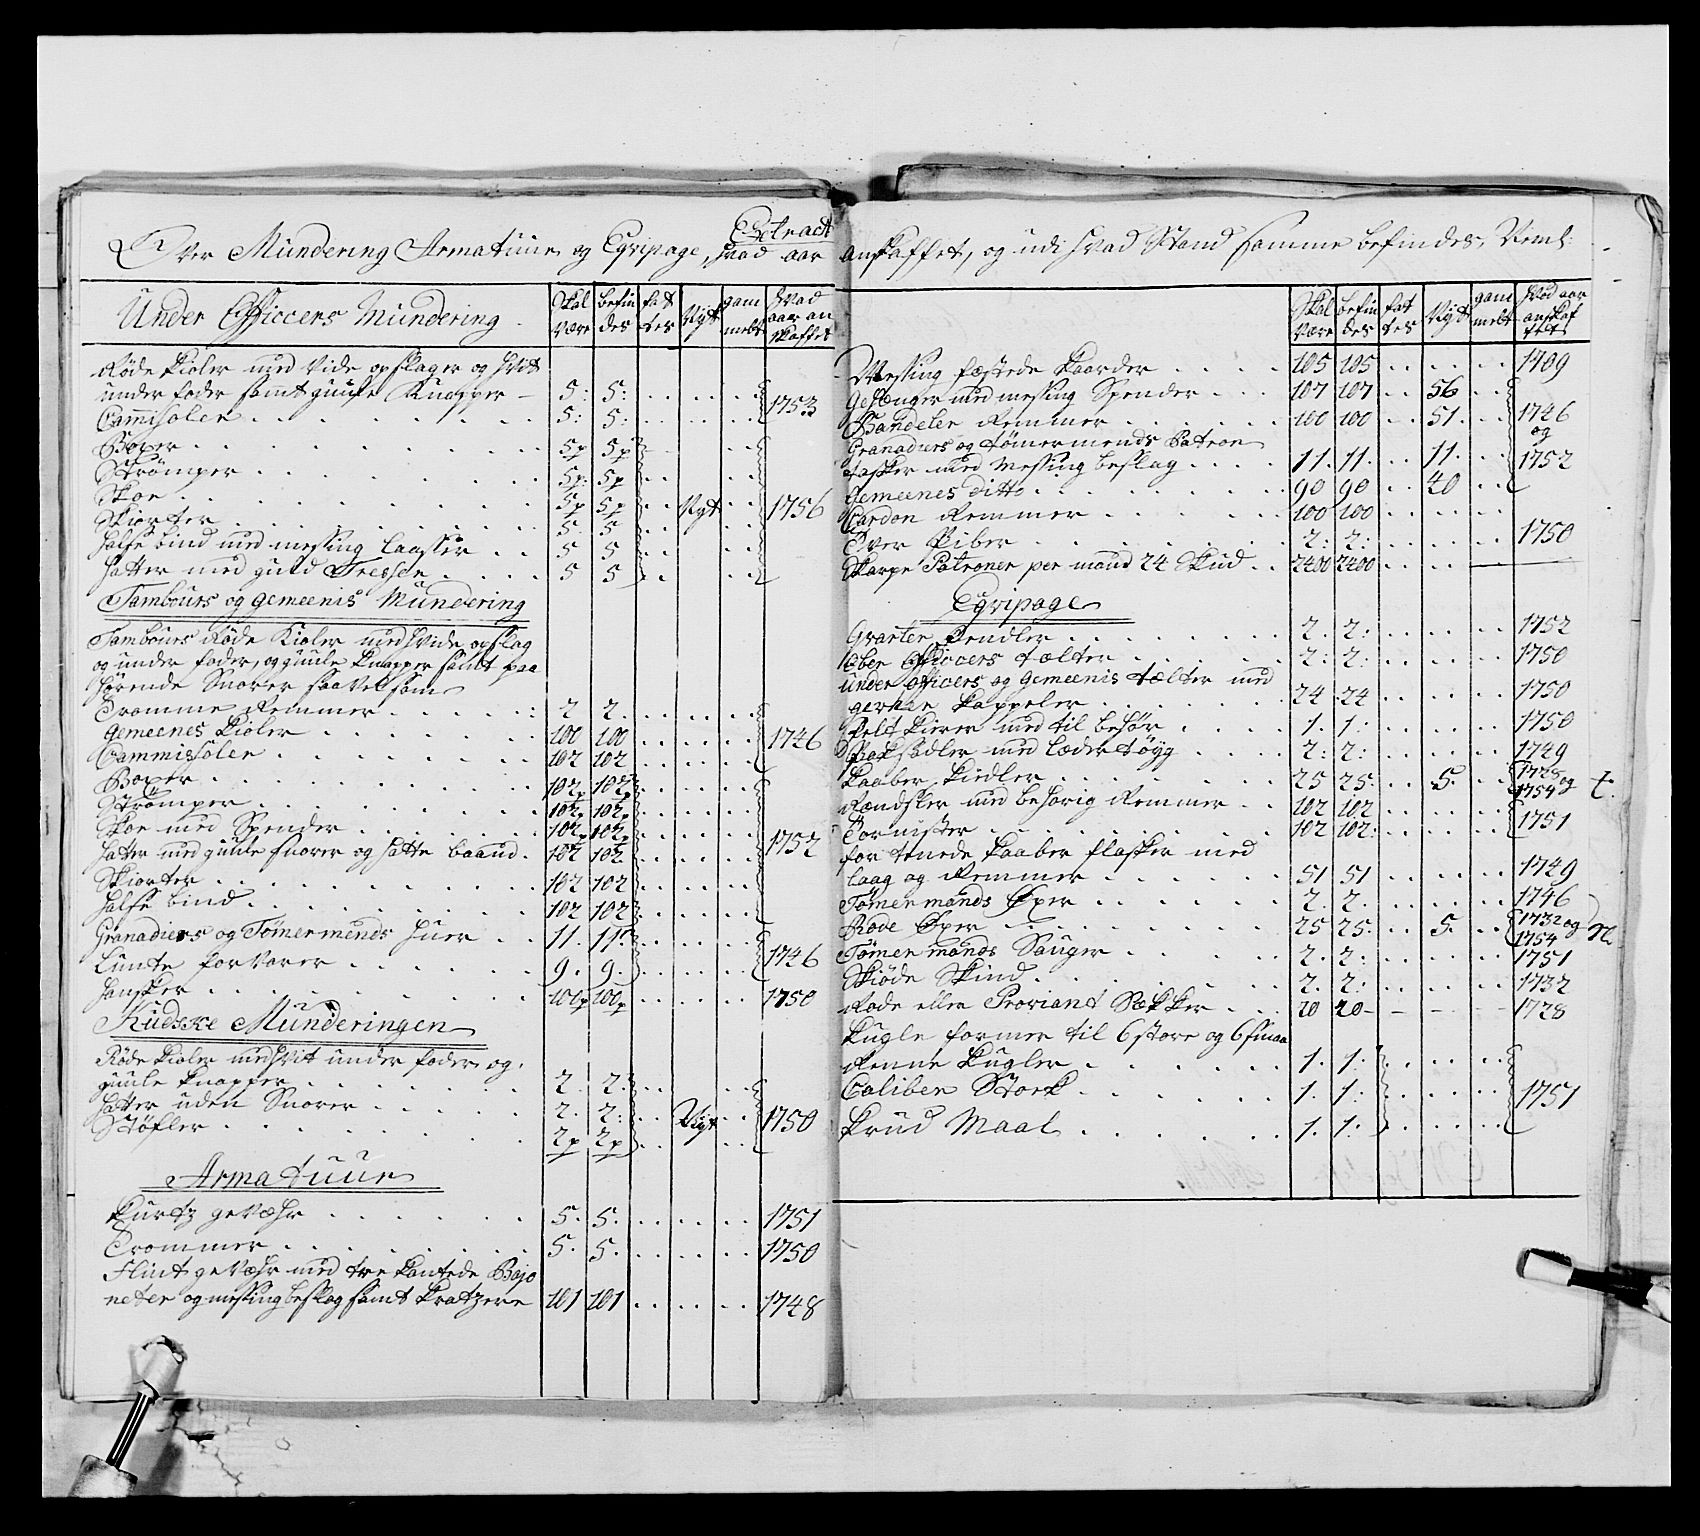 Extract
Over Mündering Armatuur og Eqvipage, hvad aar anskaffet, og udi hvad Stand samme befindes, Neml:
Under Officcers Mündering
Skal være
befin des
fat tes
Nyt
gam melt
Hvad aar an skaffet
Røde Kioler med Vide opslager og hvit
under foder samt guule Knapper — 5: 5:
Cammisoler 5: 5: 1753
Boxer 5p 5p
Strömper 5p: 5p
Skoe 5p 5p Nyt 1756
Skiorter 5 5
Halse bind med messing Laasser 5 5
Hatter med guld Tresser 5 5
Tambours og gemeenis Mündering
Tambours Røde Kioler med hvide opslag
og under foder, og guule Knapper samt paa
hørende Snorer saavelsom
Tromme Remmer 2 2
Gemeenes Kioler 100 100 1746
Cammissoler 102 102
Boxer 102p 102p
Strømper 102p 102p
Skoe med Spender 102p 102p
Hatter med guule snorer og hatte baand 102 102 1752
Skiorter 102 102
Halse bind 102 102
Granadiers og Tømermends Huer 11. 11.
Lunte forvarer 9. 9. 1746
Hansker 101p 101p 1750
Kudske Münderingen
Røde Kioler med hvit under foder og
guule Knapper 2 2
Hatter uden Snorer 2. 2: Nyt 1750
Støfler 2p 2p
Armatuur
Kurtz geVæhr 5. 5. 1751
Trommer 5. 5. 1750
Flint geVæhr med tre kantede Bajo
neter og messing beslag samt Kratzere 101 101 1748
Skal være
befin des
fat tes
Nyt
gam melt
Hvad aar anskaf fet
Messing fæstede Kaarder 105 105 1709
Gehænger med messing Spender 107 107 56
Bandeler Remmer 100 100 51. 1746
og
Granadiers og tømermends Patron
tasker med Messing beslag 11. 11. 11. 1752
Gemeenes ditto 90 90 40
Cardon Remmer 100 100
Tver Piber 2: 2: 1750
Skarpe Patroner per mand 24 Skud 2400 2400
Eqvipage
Qvarteer Fendler 2. 2: 1752
Ober Officcers tælter 2: 2: 1750
Under officers og gemeenis tælter med
geværr Kappeler 24 24 1750
Felt Kierer med til behør 1. 1: 1750
Pak sadler med Lædertøyg 2: 2: 1749
Kaaber Kiedler 25 25: 5. 1728 og
1754 t.
Rændsler med behørig Remmer 102 102
Tornister 102 102: 1751
for tenede Kaaber flasker med
Laag og Remmer 51 51 1749
Tømermands Øxer 2. 2. 1746
Rove Øxer 25 25: 5. 1732 og
1754 N.
Tømermands Sauger 2. 2: 1751
Skiøde Skind 2. 2: 1732
Rode eller Proviant Sækker 20 20 1728
Kugle former til 6 store og 6 smaa
Renne Kugler 1. 1:
Caliber Stock 1. 1: 1751
Krud Maal 1. 1: